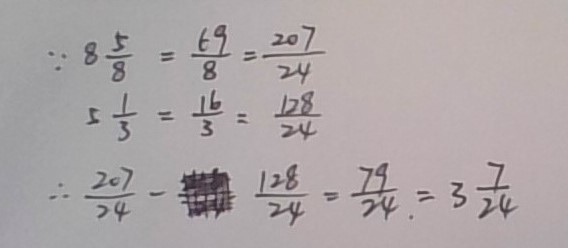 ∵ 8 5/8 = 69/8 = 207/24
5 1/3 = 16/3 = 128/24
∴ 207/24 - 128/24 = 79/24 = 3 7/24